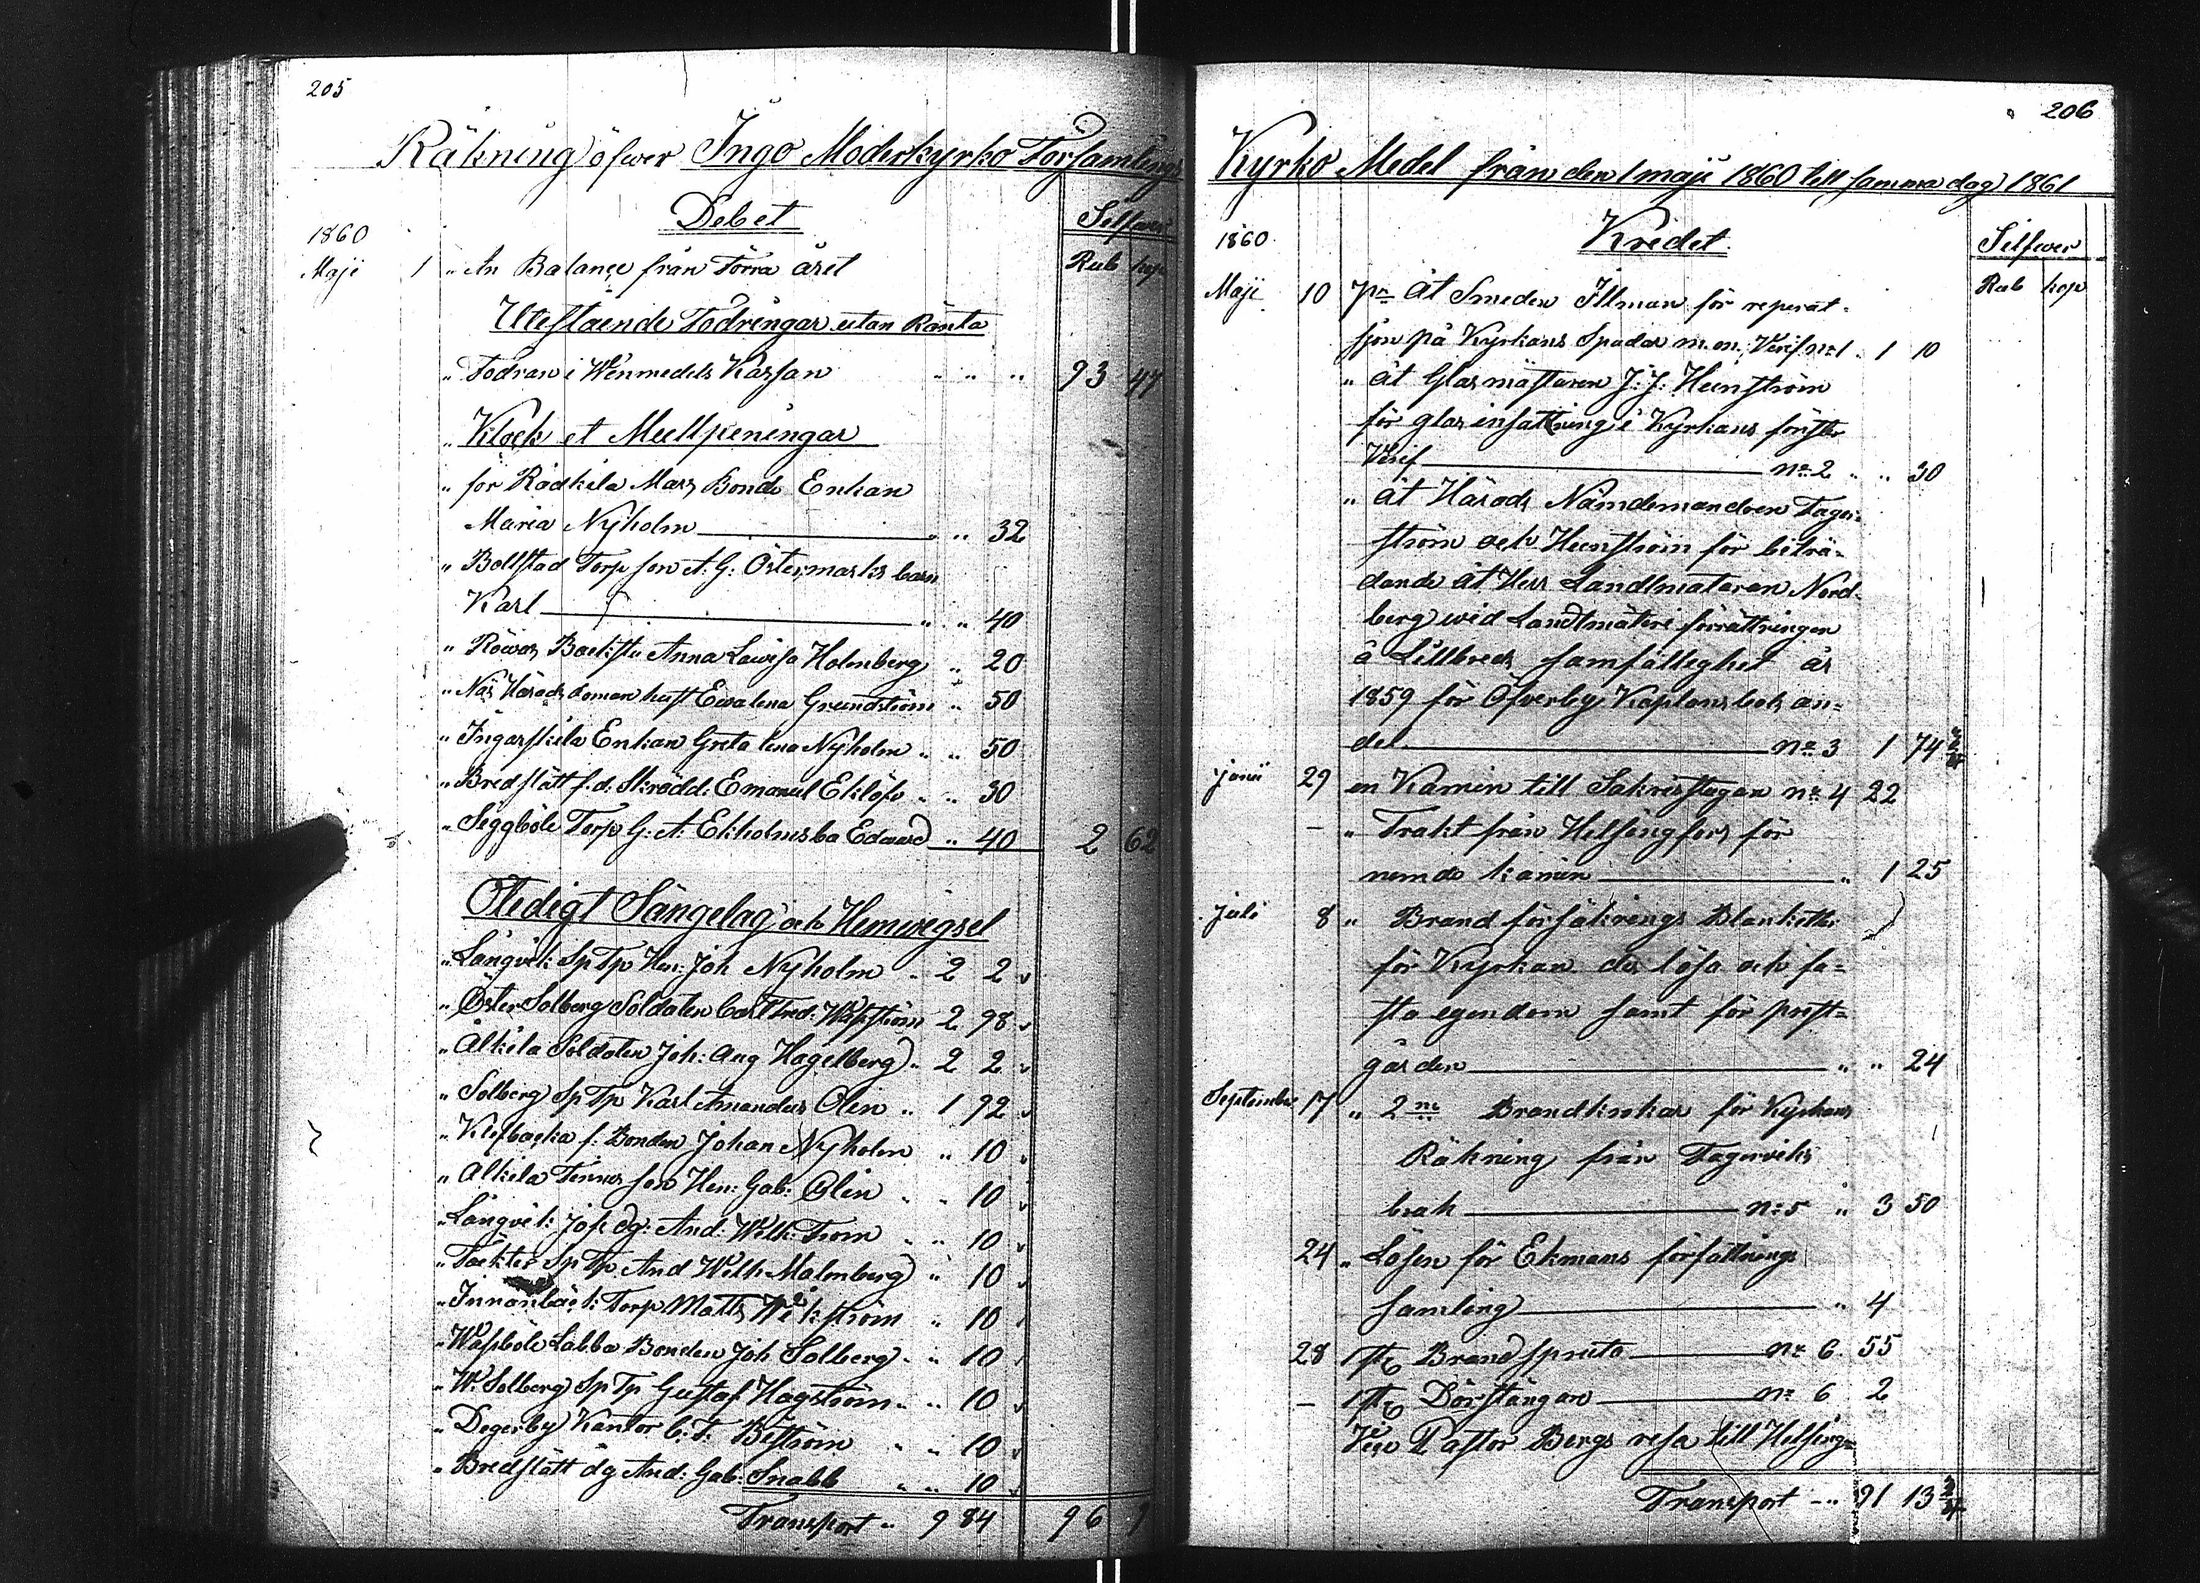 205
Räkning öfwer Ingo Moderkyrko Församlings
Debet
Silfwer
1860
Maji 1 " An Balançe från förra året
Rub kop
Utestående Fodringar utan Ränta
" Fodran i Wenmedels Kassan " " " 93 47
" Klock et Mullpeningar
" för Rådkila Mars Bonde Enkan
Maria Nyholm " " 32
" Bollstad Torp son A: G: Östermarks barn
Karl " " 40
" Röwas Backstu Anna Lowisa Holmberg " 20
" Näs Härads doman hust Ewalena Grundström " 50
" Ingarskila Enkan Greta lena Nyholm " " 50
" Bredslätt f. d. Skrädd: Emanuel Eklöf " " 30
" Seggböle Torp G: A: Ekholms ba Edward " 40 2 62
Oledigt Sångelag och Hemwigsel
" Långvik: Sp Tp Hen: Joh Nyholm " 2 2
" Öster Solberg Soldaten Carl Fred: Wikström 2 98
" Alkila Soldaten Joh: Aug Hagelberg " 2 2
" Solberg Sp Tp Karl Amandus Olin " 1 92
" Klefbacka f: Bonden Johan Nyholm " 10
" Alkila Torpar son Hen: Gab: Olin " " 10
" Långvik: And: Wilh: Trom " " 10
" Täckter Sp Tp And Wilh Malmberg " 10
" Innanbäck: Torp Matts Wikström " 10
" Wasböle Labba Bonden Joh Solberg " " 10
" W: Solberg Sp Tp Gustaf Hagström " " 10
" Degerby Kantor C: F: Biström " " 10
" Bredslätt dg And: Gab: Snabb " " 10
Transport " 9 84 96 9
206
Kyrko Medel från den 1 maji 1860 till samma dag 1861
Kredet
Silfwer
1860
Rub kop
Maji 10 pr åt Smeden Illman för reperat-
sjon på Kyrkans Spadar m. m. Verif no 1 " 1 10
" åt Glasmästaren J: J: Hemström
för glas insättning i Kyrkans fönster
Verif no 2 " " 30
" åt Härads Nämdemandren Fager-
ström och Hemström för beträ-
dande åt Herr Landtmätaren Nord-
berg wid Landtmäteri förrättningen
å Lillbreds samfällighet år
1859 för Öfverby Kaplans bols an-
del no 3 1 74 3/4
junii 29 en Kamin till Sakristigan no 4 22
— " Frakt från Helsingfors för
nemde kamin " 1 25
Juli 8 " Brand försäkrings Blanketter
för Kyrkan des lösa och fa-
sta egendom samt för prest-
gården " " 24
September 17 " 2ne Brandkrokar för Kyrkans
Räkning från Fagerviks
bruk no 5 " 3 50
24 " Lösen för Ekmans författnings
samling " 4
28 1 st Brandspruta no 6 55
— 1 st Dörstängare no 6 2
Vice Pastor Bergs resa till Helsing-
Transport " 91 13 3/4